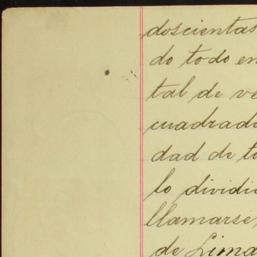 doscientas
do todo en
tal de ve
cuadrado
dad de t
lo dividi
llamarse,
de Lima